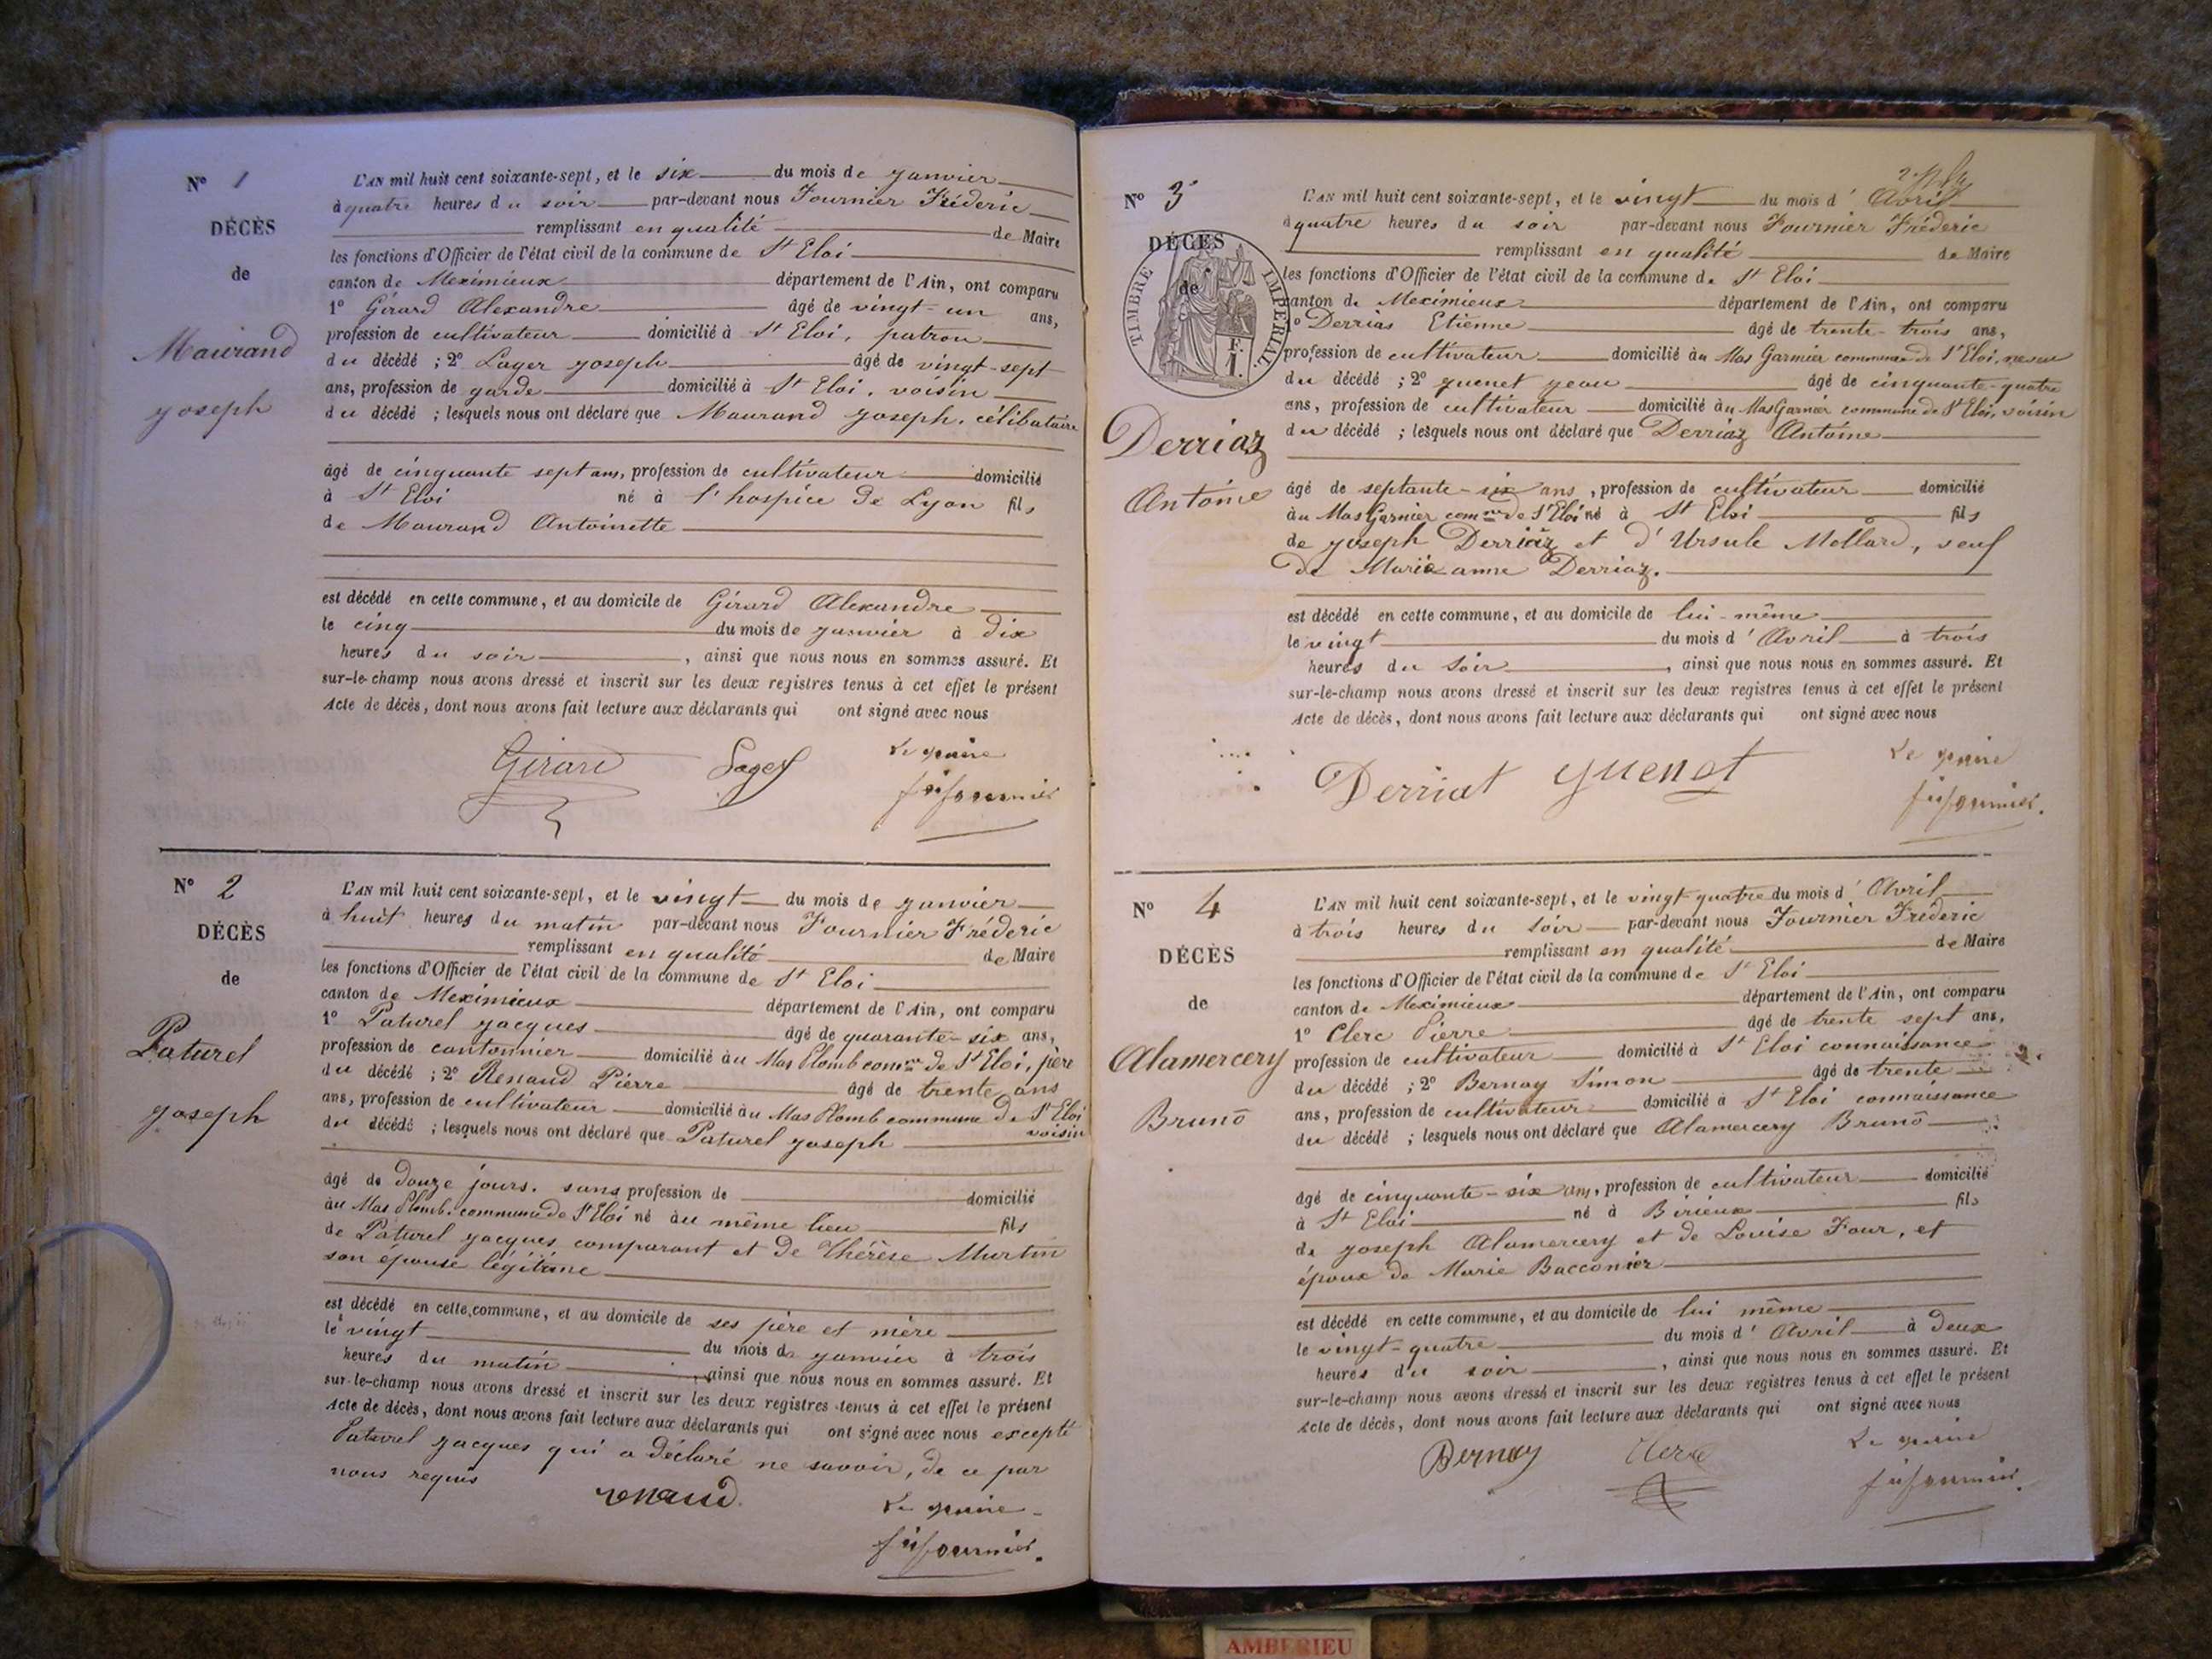 N° 1
DÉCÈS
de
Maurand
Joseph
L'AN mil huit cent soixante-sept, et le six du mois de Janvier
à quatre heures du soir par-devant nous Fournier Fréderic
remplissant en qualité de Maire
les fonctions d'Officier de l'état civil de la commune de St Eloi
canton de Meximieux département de l'Ain, ont comparu
1° Girard Alexandre âgé de vingt-un ans,
profession de cultivateur domicilié à St Eloi, patron
du décédé ; 2° Lager Joseph âgé de vingt-sept
ans, profession de garde domicilié à St Eloi, voisin
du décédé ; lesquels nous ont déclaré que Maurand Joseph, célibataire
âgé de cinquante sept ans, profession de cultivateur domicilié
à St Eloi né à l'hospice de Lyon fils
de Maurand Antoinette
est décédé en cette commune, et au domicile de Girard Alexandre
le cinq du mois de Janvier à dix
heures du soir, ainsi que nous nous en sommes assuré. Et
sur-le-champ nous avons dressé et inscrit sur les deux registres tenus à cet effet le présent
Acte de décès, dont nous avons fait lecture aux déclarants qui ont signé avec nous
Girard Lager Le maire
N° 2
DÉCÈS
de
Paturel
Joseph
L'AN mil huit cent soixante-sept, et le vingt du mois de Janvier
à huit heures du matin par-devant nous Fournier Fréderic
remplissant en qualité de Maire
les fonctions d'Officier de l'état civil de la commune de St Eloi
canton de Meximieux département de l'Ain, ont comparu
1° Paturel Jacques âgé de quarante-six ans,
profession de cantonnier domicilié au Mas Plomb comne de St Eloi, père
du décédé ; 2° Renaud Pierre âgé de trente ans
ans, profession de cultivateur domicilié au Mas Plomb commune de St Eloi
voisin
du décédé ; lesquels nous ont déclaré que Paturel Joseph
âgé de douze jours, sans profession de domicilié
au Mas Plomb, commune de St Eloi né au même lieu fils
de Paturel Jacques, comparant et de Thérèse Murtin
son épouse légitime
est décédé en cette commune, et au domicile de ses père et mère
le vingt du mois de Janvier à trois
heures du matin, ainsi que nous nous en sommes assuré. Et
sur-le-champ nous avons dressé et inscrit sur les deux registres tenus à cet effet le présent
Acte de décès, dont nous avons fait lecture aux déclarants qui ont signé avec nous excepté
Paturel Jacques qui a déclaré ne savoir, de ce par
nous requis
renaud Le maire
N° 3
DÉCÈS
de
TIMBRE IMPERIAL
F.
1.
Derriaz
Antoine
L'AN mil huit cent soixante-sept, et le vingt du mois d'Avril
à quatre heures du soir par-devant nous Fournier Fréderic
remplissant en qualité de Maire
les fonctions d'Officier de l'état civil de la commune de St Eloi
canton de Meximieux département de l'Ain, ont comparu
1° Derrias Etienne âgé de trente-trois ans,
profession de cultivateur domicilié au Mas Garnier commune de St Eloi, neveu
du décédé ; 2° Guenet Jean âgé de cinquante-quatre
ans, profession de cultivateur domicilié au Mas Garnier commune de St Eloi, voisin
du décédé ; lesquels nous ont déclaré que Derriaz Antoine
âgé de septante-six ans, profession de cultivateur domicilié
au Mas Garnier comne de St Eloi né à St Eloi fils
de Joseph Derriaz et d'Ursule Mollard, veuf
de Marie anne Derriaz.
est décédé en cette commune, et au domicile de lui-même
le vingt du mois d'Avril à trois
heures du soir, ainsi que nous nous en sommes assuré. Et
sur-le-champ nous avons dressé et inscrit sur les deux registres tenus à cet effet le présent
Acte de décès, dont nous avons fait lecture aux déclarants qui ont signé avec nous
Derriat guenet Le maire
N° 4
DÉCÈS
de
Alamercery
Bruno
L'AN mil huit cent soixante-sept, et le vingt quatre du mois d'Avril
à trois heures du soir par-devant nous Fournier Fréderic
remplissant en qualité de Maire
les fonctions d'Officier de l'état civil de la commune de St Eloi
canton de Meximieux département de l'Ain, ont comparu
1° Clerc Pierre âgé de trente sept ans,
profession de cultivateur domicilié à St Eloi connaissance
du décédé ; 2° Bernay Simon âgé de trente
ans, profession de cultivateur domicilié à St Eloi connaissance
du décédé ; lesquels nous ont déclaré que Alamercery Bruno
âgé de cinquante-six ans, profession de cultivateur domicilié
à St Eloi né à Birieux fils
de Joseph Alamercery et de Louise Four, et
époux de Marie Bacconier
est décédé en cette commune, et au domicile de lui même
le vingt-quatre du mois d'Avril à deux
heures du soir, ainsi que nous nous en sommes assuré. Et
sur-le-champ nous avons dressé et inscrit sur les deux registres tenus à cet effet le présent
Acte de décès, dont nous avons fait lecture aux déclarants qui ont signé avec nous
Bernay Clerc Le maire
AMBERIEU